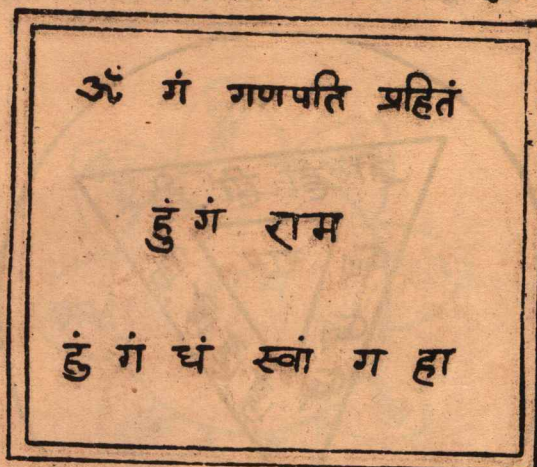 ॐ गं गणपति प्रहितं
हुं गं राम
हुं गं घं स्वां ग हा